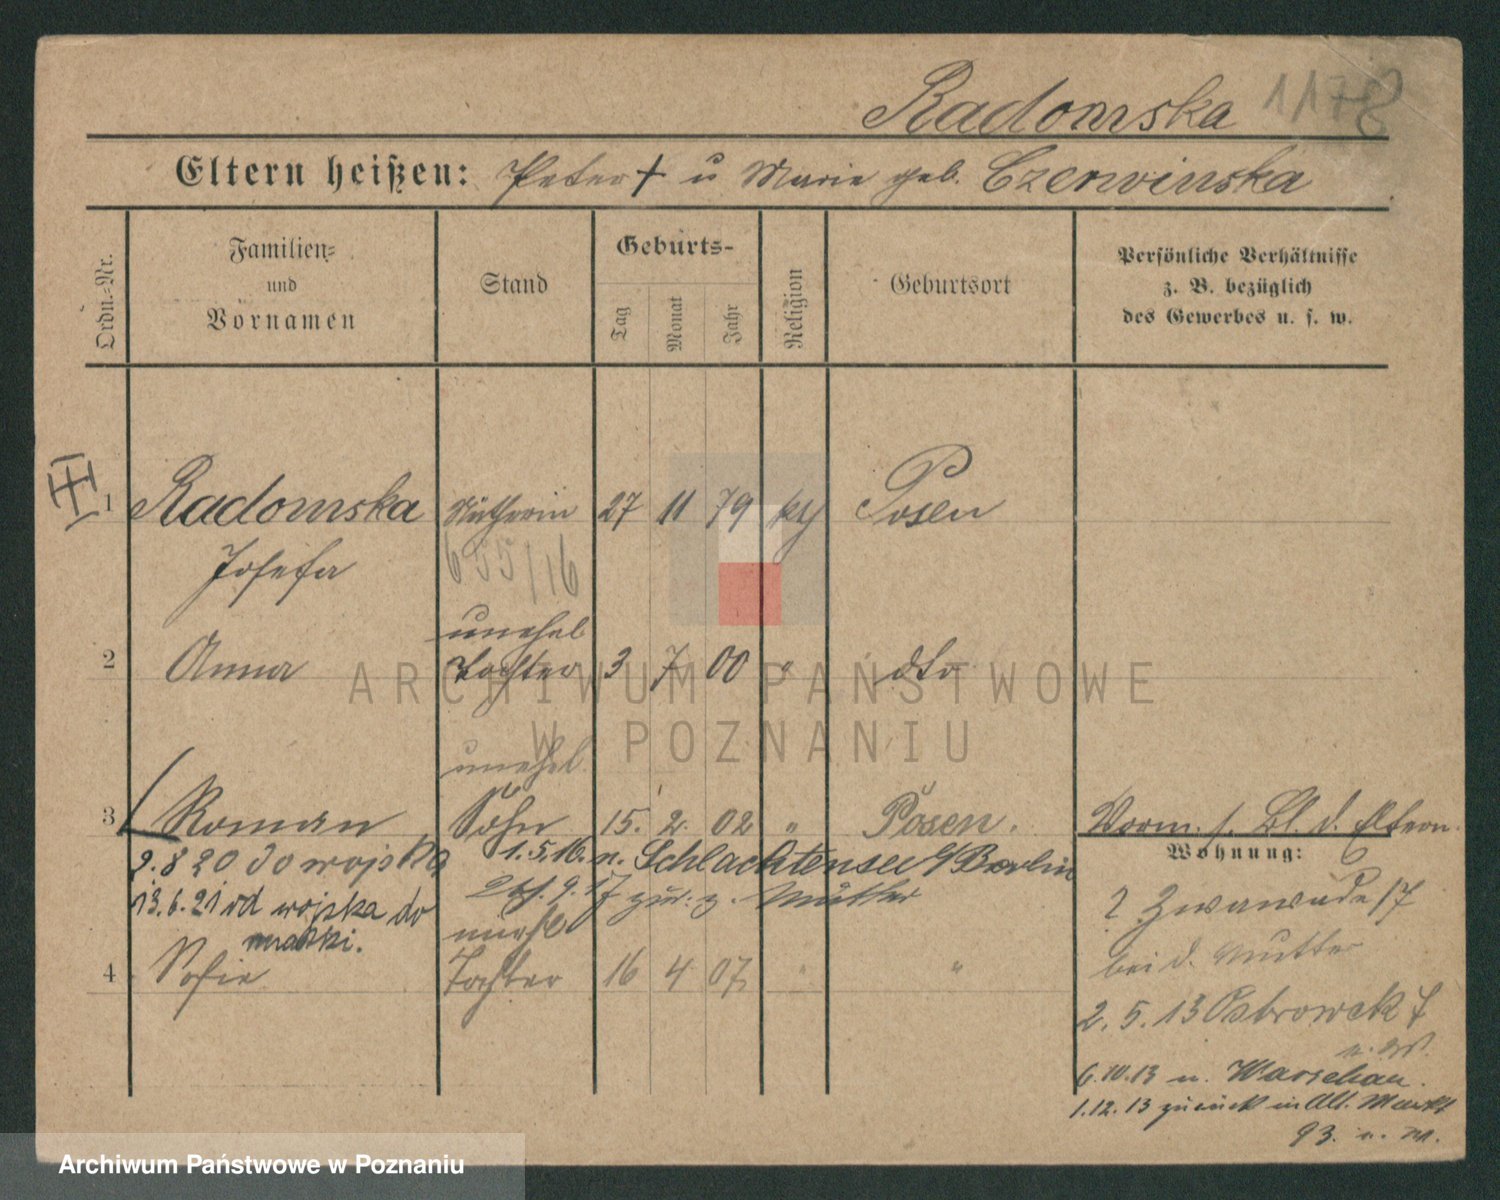 Radomska 1178
Eltern heißen: Peter + u Marie geb. Czerwinska
Ordn.-Nr.
Familien-
und
Vornamen
Stand
Geburts-
Tag
Monat
Jahr
Religion
Geburtsort
Persönliche Verhältnisse
z. B. bezüglich
des Gewerbes u. s. w.
1 Radomska Nätherin 27 11 79 kth Posen
Josefa 655/16
unehel
2 Anna Tochter 3 7 00 " dto
unehel.
3 Roman Sohn 15. 2. 02 " Posen. Vorm. s. Bl. d. Eltern.
Wohnung:
2.8 20 do wojska 1.5.16. n. Schlachtensee b/Berlin
13.6.21 od wojska do 9.17 zur. z. Mutter
matki. unehl
4 Sofie Tochter 16 4 07 " "
bei d. Mutter
2. 5. 13 Ostrowek 7
6.10.13 n. Warschau.
1.12.13 zurück in Alt. Markt
93. n. m.
ARCHIWUM PAŃSTWOWE
W POZNANIU
Archiwum Państwowe w Poznaniu